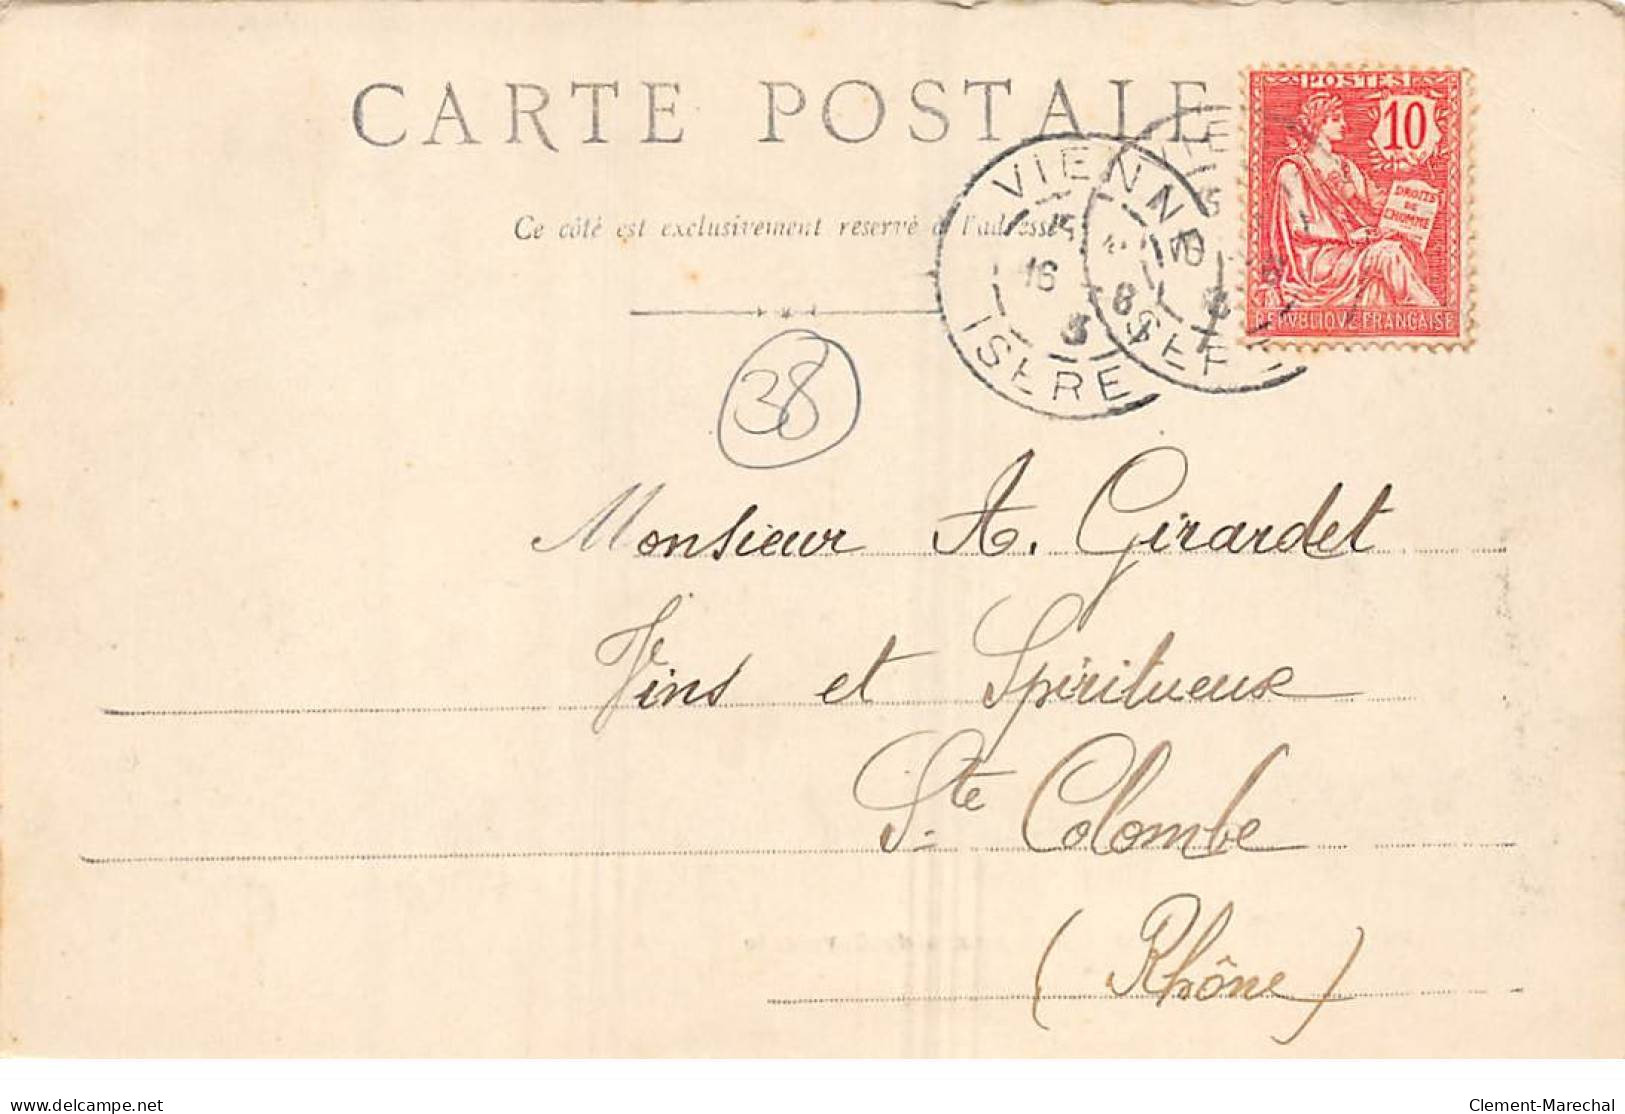 CARTE POSTALE
Ce côté est exclusivement reservé à l'adresse
POSTES
10
DROITS
DE
L'HOMME
REPVBLIQVE FRANÇAISE
VIENNE
16
ISERE
38
Monsieur A. Girardet
Vins et Spiritueux
Ste Colombe
(Rhône)
delcampe.net
Clement-Marechal